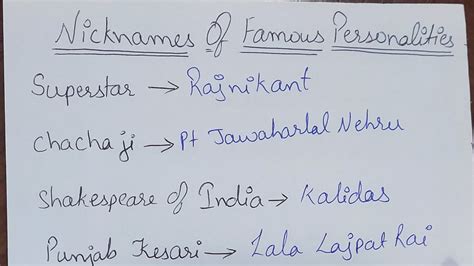 Nicknames Of Famous Personalities
Superstar → Rajnikant
Chacha ji → Pt Jawaharlal Nehru
Shakespeare of India → Kalidas
Punjab Kesari → Lala Lajpat Rai